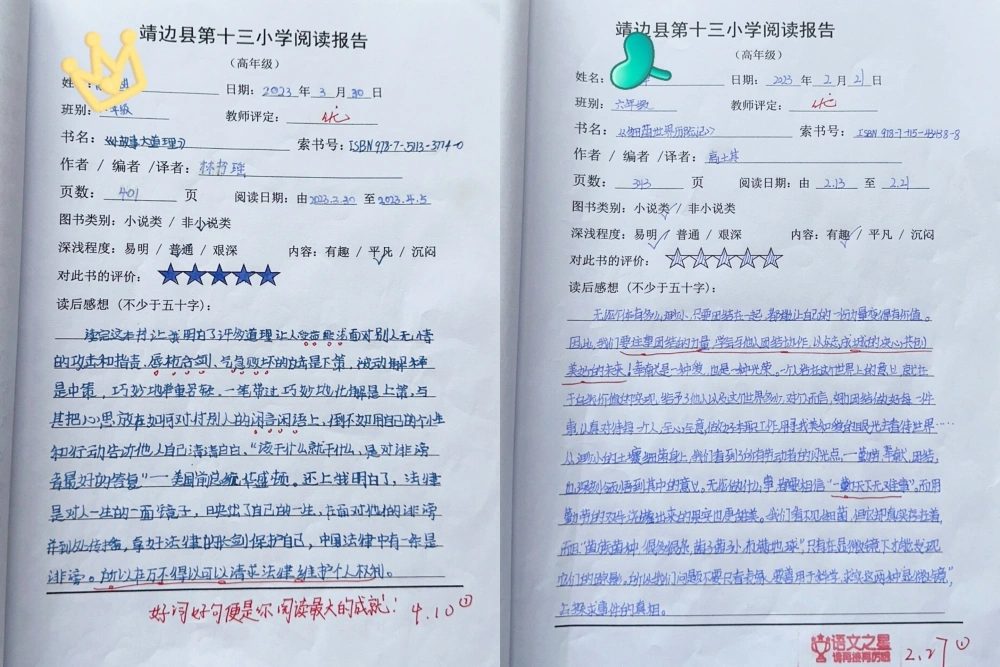 靖边县第十三小学阅读报告
（高年级）
姓
日期：2023 年 3 月 30 日
班别：年级
教师评定：优
书名：《小故事大道理》
索书号：ISBN 978-7-5113-3774-0
作者 / 编者 /译者：林书瑶
页数：401 页
阅读日期：由2023.3.30 至2023.4.5
图书类别：小说类 / 非小说类
深浅程度：易明 / 普通 / 艰深
内容：有趣 / 平凡 / 沉闷
对此书的评价：
读后感想（不少于五十字）：
读完这本书让我明白了许多道理让人受益匪浅面对别人无情
的攻击和指责，唇枪舌剑、气急败坏的方法是下策，被动解释
是中策，巧妙地避重若轻，一笔带过巧妙地化解是上策，与
其把心思放在如何对付别人的闲言闲语上，倒不如用自己的个性
和行动告诉他人自己清清白白、“该干什么就干什么，是对诽谤
者最好的答复”一美国前总统华盛顿。还上我明白了，法律
是对人一生的一面镜子，日映出了自己的一生，在面对他们的诽谤
并到处传播，拿好法律的长剑保护自己，中国法律中有一条是
诽谤。所以在万不得以可以请求法律维护个人权利。
好词好句便是你阅读最大的成就！ 4.10
靖边县第十三小学阅读报告
（高年级）
姓名：
日期：2023 年 2 月 21 日
班别：六年级
教师评定：优
书名：《细菌世界历险记》
索书号：ISBN 978-7-115-43438-8
作者 / 编者 /译者：高士其
页数：313 页
阅读日期：由 2.13 至 2.21
图书类别：小说类 / 非小说类
深浅程度：易明 / 普通 / 艰深
内容：有趣 / 平凡 / 沉闷
对此书的评价：
读后感想（不少于五十字）：
无论个体有多么渺小，只要团结在一起，都能让自己的一份力量变得有价值。
因此，我们要注重团结的力量，学会与他人团结协作，以众志成城的决心共创
美好的未来！奉献是一种爱，也是一种光荣。一个人活在这个世界上的意义，就在
于
事，认真对待每一个人，全心全意，做好本职工作，用寻找美如镜的眼光去看待世界……
从渺小的土壤细菌身上，我们看到了所有劳动者的闪光点，一勤劳、奉献、团结，
也深刻领悟到其中的意义。无论做什么事，都要相信“一勤天下无难事”，而用
勤劳的双手浇灌出来的果实也更甜美。我们看不见细菌，但它却真实存在着，
而且“菌生菌种，很多很杂，菌子菌孙，布满地球”只有在显微镜下才能发现
它们的踪影，所以我们问题不要只看表象，要善用于科学、求实这两种“显微镜”，
去探求事件的真相。
语文之星
2.27